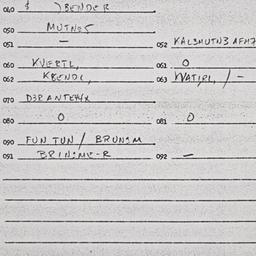 040 $ )BENDER
050 MUTNS5
051 — 052 KALSMUTNB AFM7
060 KVERTL, 061 0
062 KBENDL, 063 WATJRL, / —
070 D3RANTEHX
080 0 081 0
090 FUN TUN / BRUNSM
091 BRINSME-R 092 —